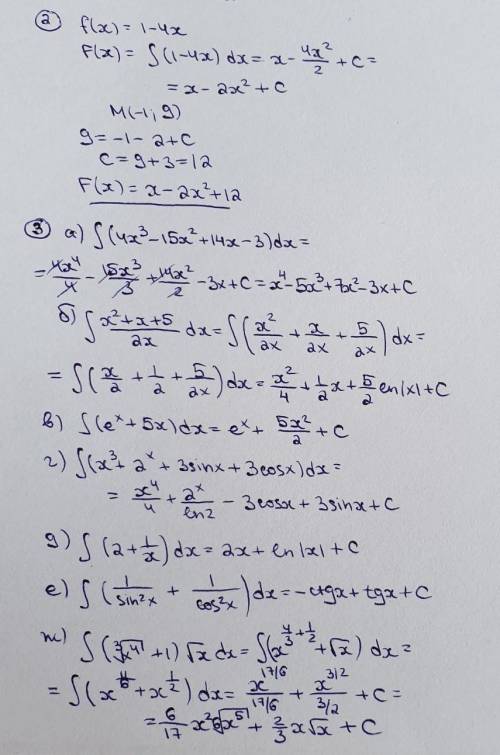 ② f(x) = 1-4x
F(x) = ∫(1-4x) dx = x - 4x²/2 + C =
= x - 2x² + C
M(-1; 9)
9 = -1 - 2 + C
C = 9 + 3 = 12
F(x) = x - 2x² + 12
③ а) ∫(4x³ - 15x² + 14x - 3)dx =
= 4x⁴/4 - 15x³/3 + 14x²/2 - 3x + C = x⁴ - 5x³ + 7x² - 3x + C
б) ∫ (x² + x + 5)/2x dx = ∫(x²/2x + x/2x + 5/2x) dx =
= ∫(x/2 + 1/2 + 5/2x) dx = x²/4 + 1/2 x + 5/2 ln|x| + C
в) ∫(eˣ + 5x) dx = eˣ + 5x²/2 + C
г) ∫(x³ + 2ˣ + 3sinx + 3cosx) dx =
= x⁴/4 + 2ˣ/ln2 - 3cosx + 3sinx + C
д) ∫ (2 + 1/x) dx = 2x + ln|x| + C
е) ∫ (1/sin²x + 1/cos²x) dx = -ctgx + tgx + C
ж) ∫ (∛x⁴ + 1) √x dx = ∫(x^(4/3 + 1/2) + √x) dx =
= ∫ (x^(11/6) + x^(1/2)) dx = x^(17/6)/(17/6) + x^(3/2)/(3/2) + C =
= 6/17 x² ⁶√x⁵ + 2/3 x√x + C